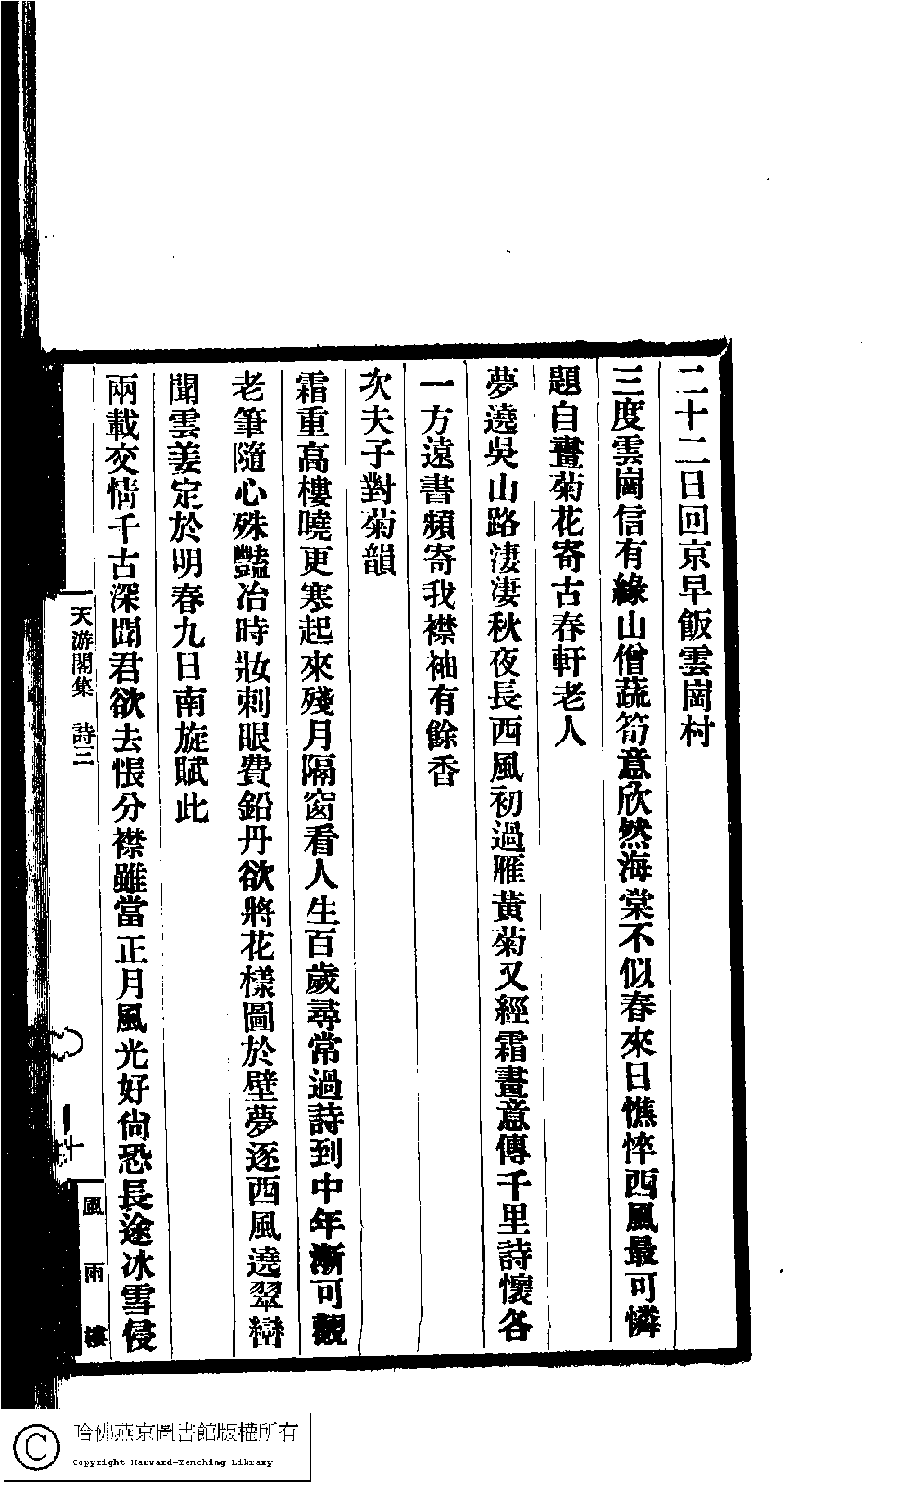 二十二日回京早飯雲崗村
三度雲崗信有緣山僧蔬筍意欣然海棠不似春來日憔悴西風最可憐
題自畫菊花寄古春軒老人
夢遶吳山路淒淒秋夜長西風初過雁黃菊又經霜畫意傳千里詩懷各
一方遠書頻寄我襟袖有餘香
次夫子對菊韻
霜重高樓曉更寒起來殘月隔窗看人生百歲尋常過詩到中年漸可觀
老筆隨心殊豔冶時妝刺眼費鉛丹欲將花樣圖於壁夢逐西風遶翠巒
聞雲姜定於明春九日南旋賦此
兩載交情千古深聞君欲去悵分襟雖當正月風光好尙恐長途冰雪侵
天游閣集 詩三
十
風雨樓
哈佛燕京圖書館版權所有
Copyright Harvard-Yenching Library